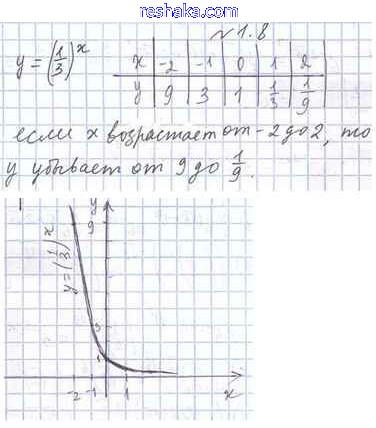 reshaka.com
№ 1.8
y = (1/3)^x
x | -2 | -1 | 0 | 1 | 2
y | 9 | 3 | 1 | 1/3 | 1/9
если x возрастает от -2 до 2, то
y убывает от 9 до 1/9.
y
9
y = (1/3)^x
3
1
-2 -1 1 x